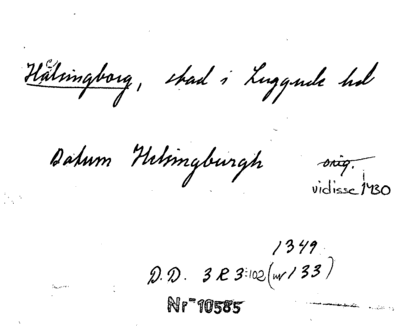 Hälsingborg, stad i Luggude hd
Datum Helsingburgh orig.
vidisse 1430
1349
D.D. 3 R 3:102 (nr 133)
Nr 10585